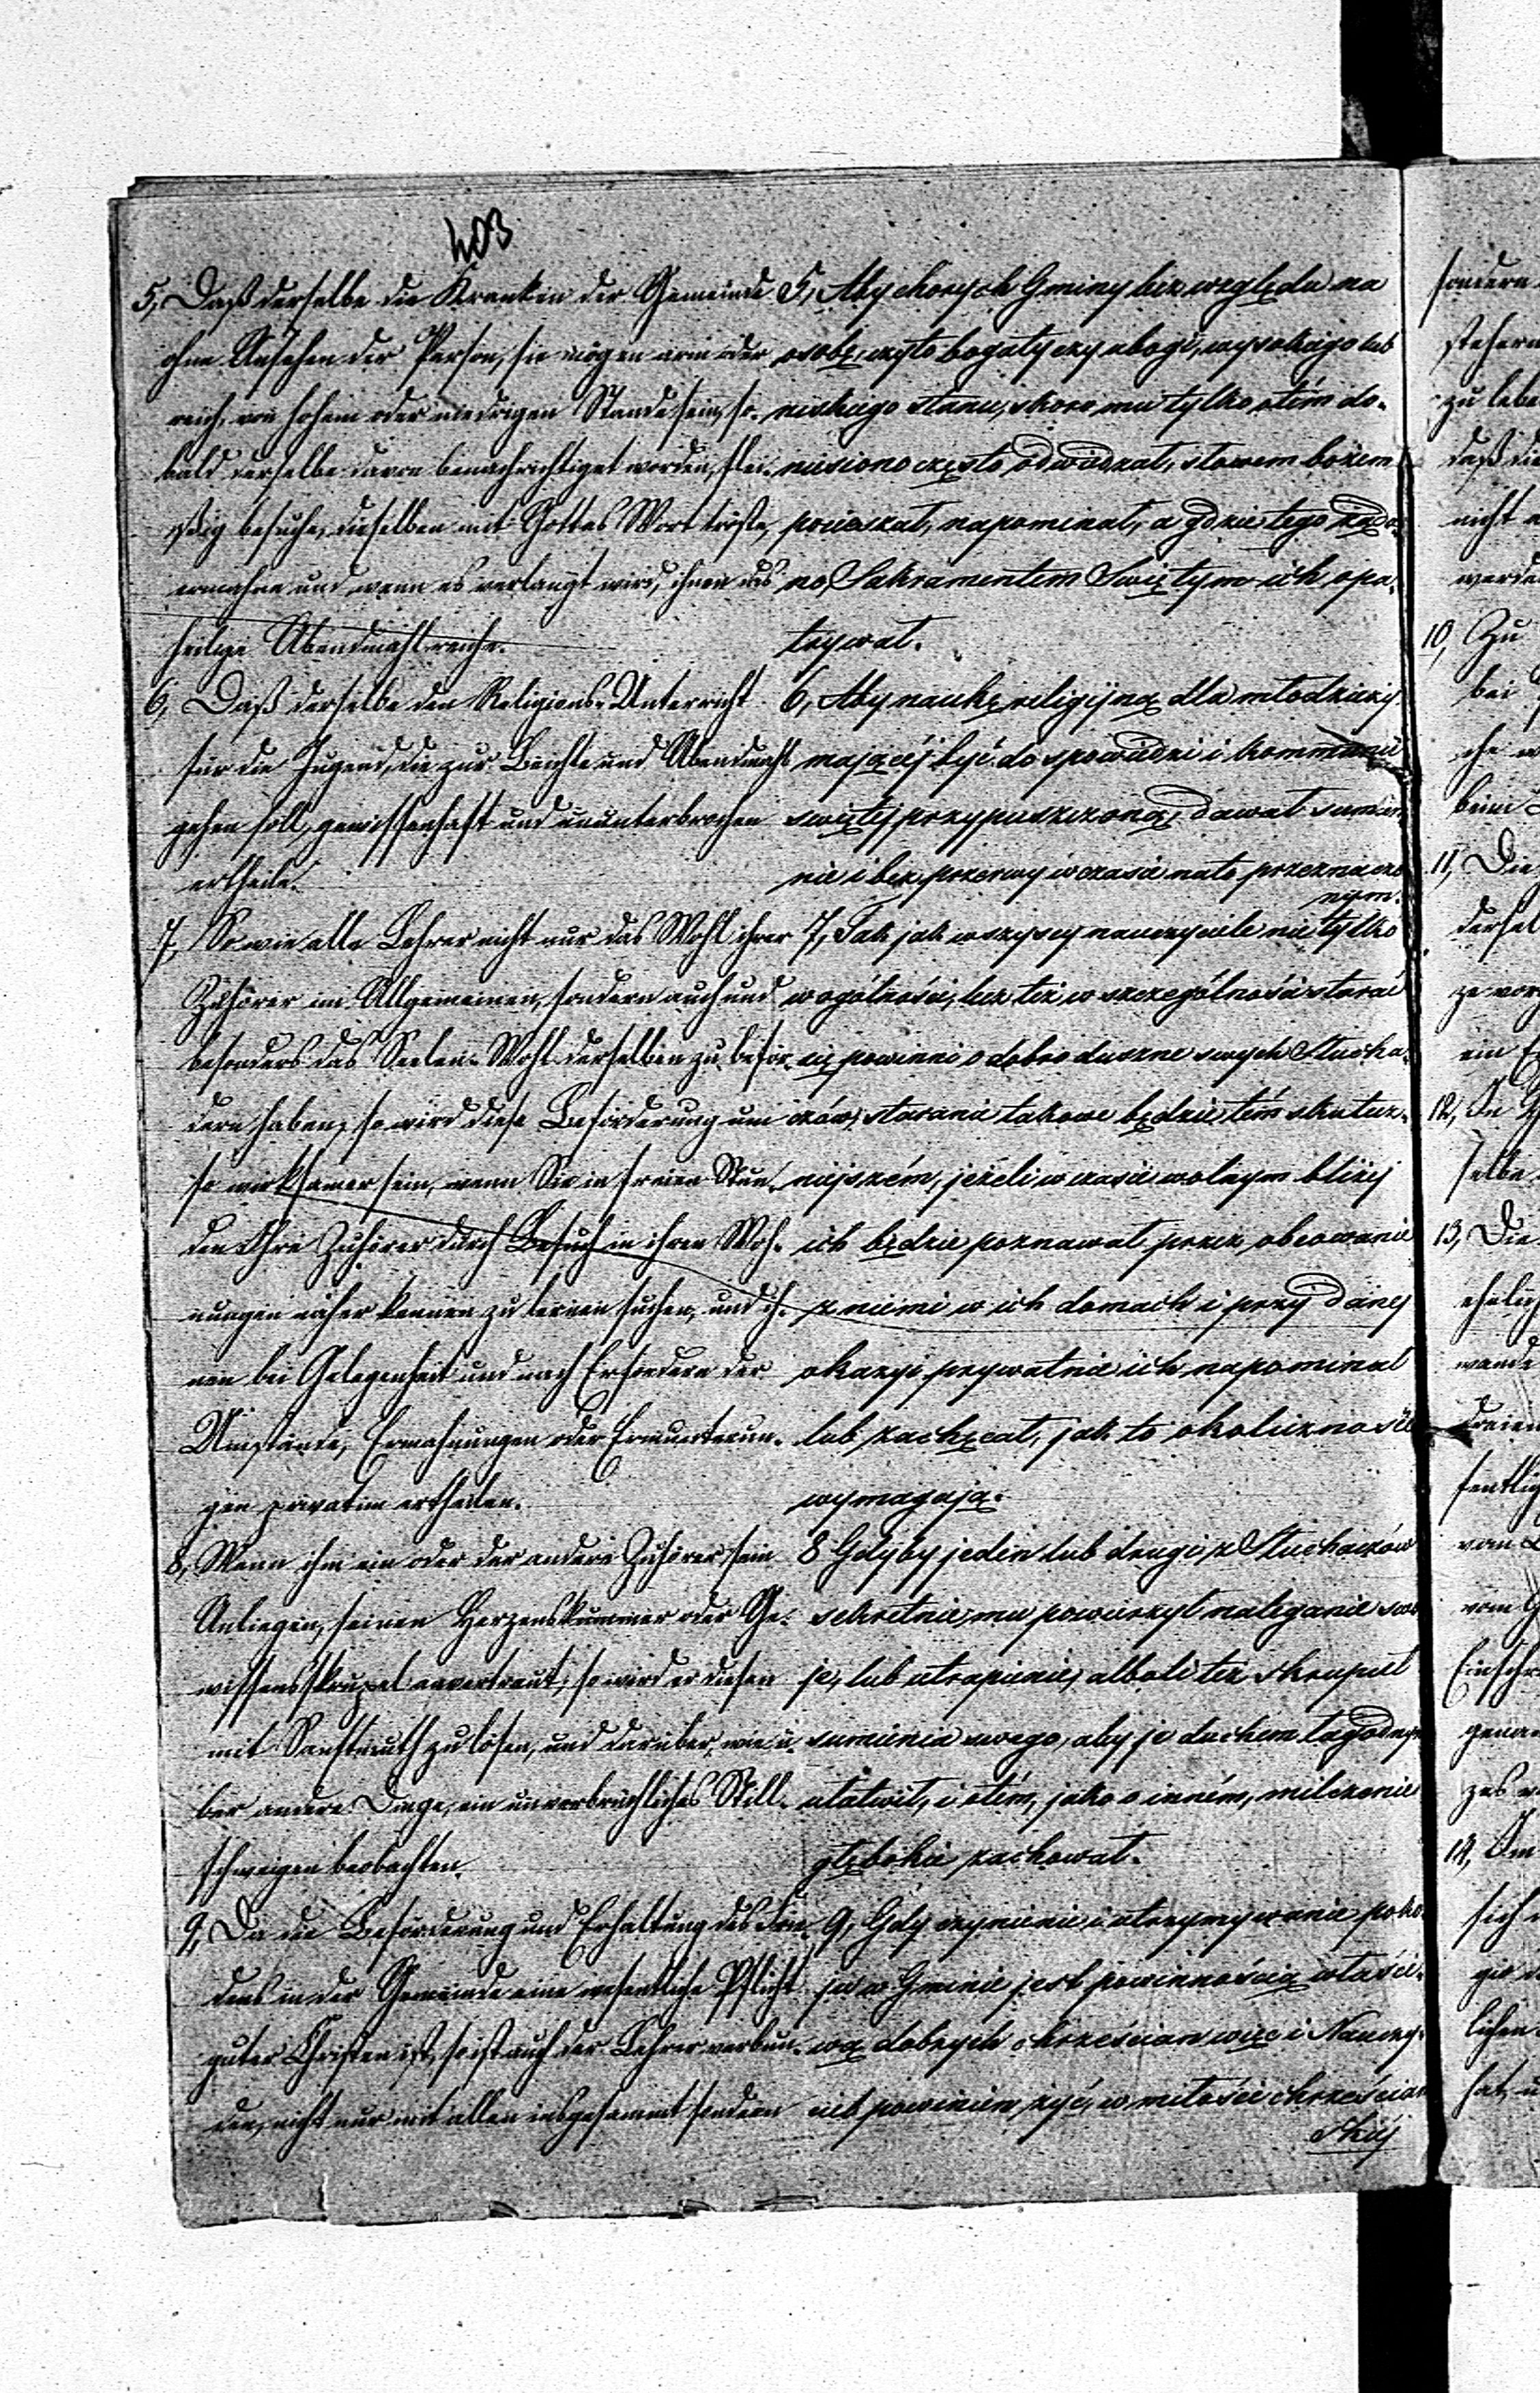 403
5, Daß derselbe die Kranken der Gemeinde
ohne Ansehen der Person, sie mögen arm oder
reich, von hohem oder niedrigen Stande sein, so-
bald derselbe davon benachrichtiget worden, flei-
ßig besuche, dieselben mit Gottes Wort tröste,
ermahne und wenn es verlangt wird, ihnen das
heilige Abendmahl reiche.
6, Daß derselbe den Religions-Unterricht
für die Jugend, die zur Beichte und Abendmahl
gehen soll, gewissenhaft und ununterbrochen
ertheile.
7, So wie alle Lehrer nicht nur das Wohl ihrer
Zuhörer im Allgemeinen, sondern auch und
besonders das Seelen-Wohl derselben zu beför-
dern haben, so wird diese Beförderung um
so wirksamer sein, wenn Sie in freien Stun-
den Ihre Zuhörer durch Besuch in ihren Woh-
nungen näher kennen zu lernen suchen, und ih-
nen bei Gelegenheit und nach Erfordern der
Umstände, Ermahnungen oder Ermunterun-
gen privatim ertheilen.
8, Wenn ihm ein oder der andere Zuhörer sein
Anliegen, seinen Herzenskummer oder Ge-
wissensskrupel anvertraut, so wird er diesen
mit Sanftmuth zu lösen, und darüber, wie ü-
ber andere Dinge, ein unverbrüchliches Still-
schweigen beobachten.
9, Da die Beförderung und Erhaltung des Frie-
dens in der Gemeinde eine wesentliche Pflicht
guter Christen ist, so ist auch der Lehrer verbun-
den, nicht nur mit allen insgesammt sondern
5, Aby chorych Gminy bez względu na
osobę, czyto bogaty czy ubogi, wysokiego lub
niskiego stanu, skoro mu tylko otém do-
niesiono często odwidzał, słowem bożem
pocieszał, napominał, a gdzie tego żąda-
no, Sakramentem Swiętym ich opa-
trywał.
6, Aby naukę religijną dla młodzieży
mającéj być do spowiedzi i kommunii
swiętéj przypuszczoną, dawał sumien-
nie i bez przerwy w czasie nato przeznaczo-
nym.
7, Tak jak wszyscy nauczyciele nie tylko
w ogólności, lecz też w szczególności starać
się powinni o dobro duszne swych Słucha-
czów, staranie takowe będzie tém skutecz-
niejszém, jeżeli w czasie wolnym bliżéj
ich będzie poznawał przez obcowanie
z niemi w ich domach i przy danéj
okazyi prywatnie ich napominał
lub zachęcał, jak to okoliczności
wymagają.
8 Gdyby jeden lub drugi z Słuchaczów
sekretnie mu powierzył naleganie swo
je, lub utrapienie, alboli też skrupuł
sumienia swego, aby je duchem łagodnym
ułatwił, i otém, jako o inném, milczenie
głębokie zachował.
9, Gdy czynienie i utrzymywanie poko-
ju w Gminie jest powinnością właści-
wą dobrych chrześcian więc i Nauczy-
ciel powinien żyć w miłości chrześcian
skiéj
sondern
zu lebe
daß die
nicht
werde
10, Zu
bei
beim
11, Die
dersel
ein
12, In
selbe
13, Die
ehelich
vom
14, Im
sich
lichen
hat,